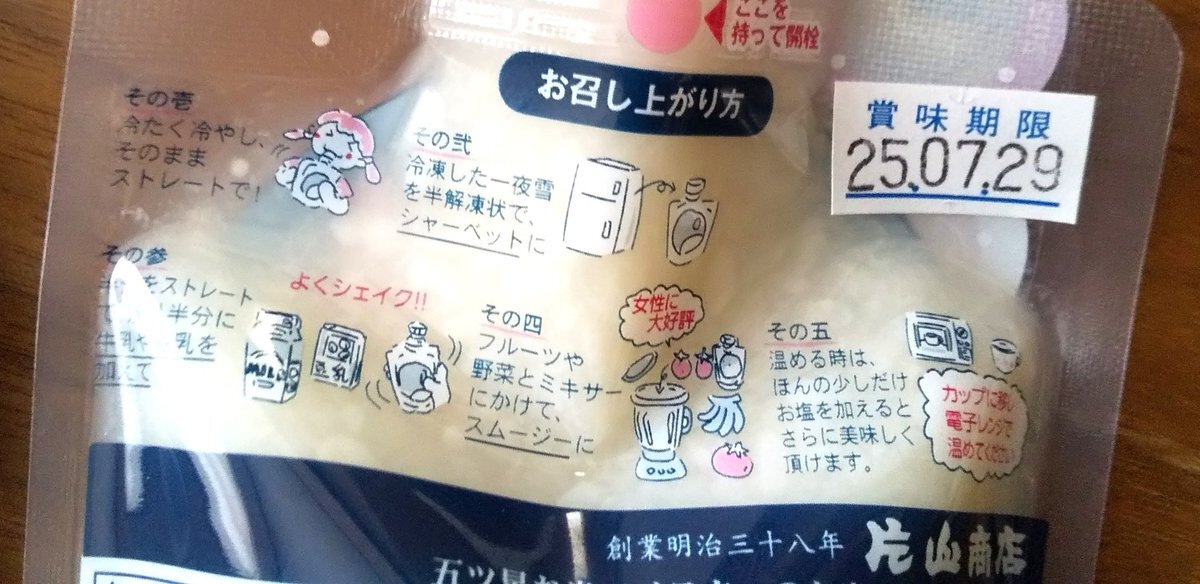 ここを
持って開栓
お召し上がり方
賞味期限
25.07.29
その壱
冷たく冷やし、
そのまま
ストレートで!
その弐
冷凍した一夜雪
を半解凍状で、
シャーベットに
その参
をストレート
半分に
牛乳や 乳を
加えて
よくシェイク!!
MILK
豆乳
その四
フルーツや
野菜とミキサー
にかけて、
スムージーに
女性に
大好評
その五
温める時は、
ほんの少しだけ
お塩を加えると
さらに美味しく
頂けます。
カップに移し
電子レンジで
温めてください
創業明治三十八年
片山商店